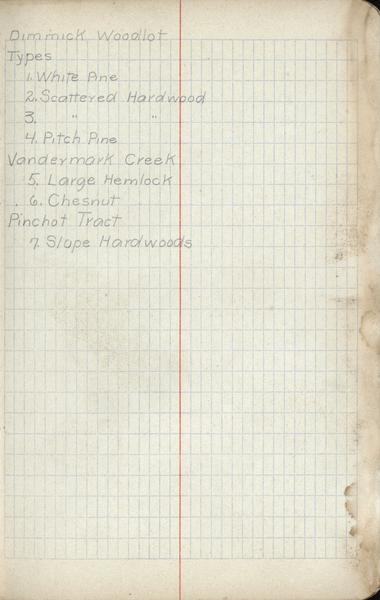 Dimmick Woodlot
Types
1. White Pine
2. Scattered Hardwood
3. " "
4. Pitch Pine
Vandermark Creek
5. Large Hemlock
6. Chesnut
Pinchot Tract
7. Slope Hardwoods